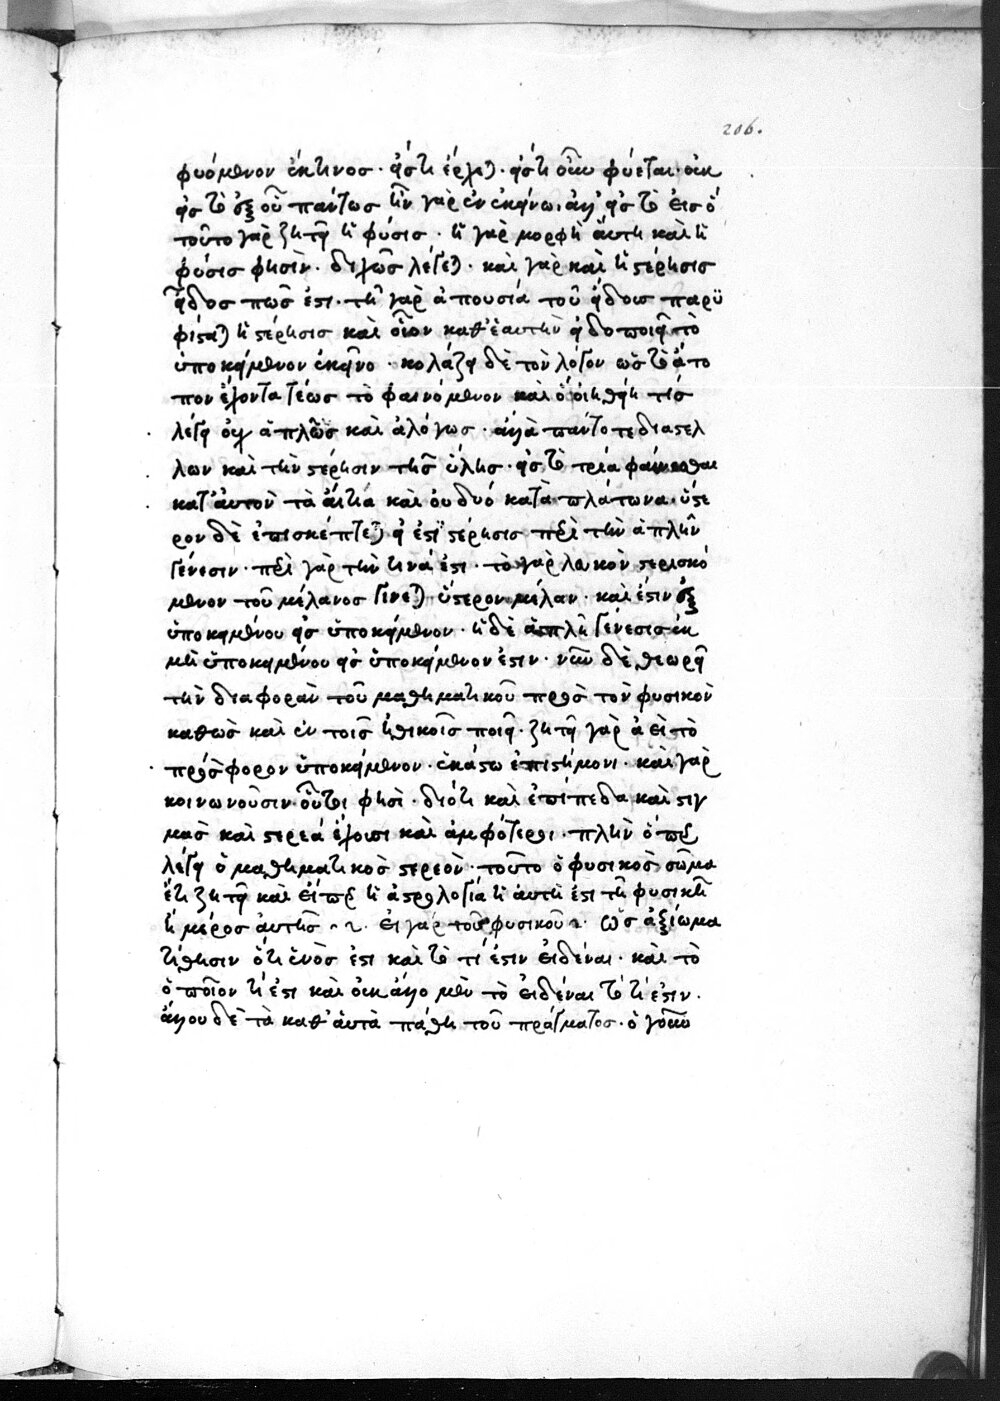 206.
φυόμενον ἔκ τινος · εἴς τι ἔρχεται · εἴς τι οὖν φύεται · οὐκ
εἰς τὸ ἐξ οὗ πάντως ἦν γὰρ ἐν ἐκείνω · ἀλλ' εἰς τὸ εἰς ὅ
τοῦτο γὰρ ζητεῖ ἡ φύσις · ἡ γὰρ μορφὴ αὕτη καὶ ἡ
φύσις φησὶν · διχῶς λέγεται · καὶ γὰρ καὶ ἡ στέρησις
εἶδος πῶς ἐστι · τῆ γὰρ ἀπουσία τοῦ εἴδους παρυ
φίσταται ἡ στέρησις καὶ οἷον καθ' ἑαυτὴν εἰδοποιεῖ τὸ
ὑποκείμενον ἐκεῖνο · κολάζει δὲ τὸν λόγον ὡς τὸ ἄτο
πον ἔχοντα τέως τὸ φαινόμενον καὶ ὃ οἰηθείη τίς
λέγει οὐχ ἁπλῶς καὶ ἀλόγως · ἀλλὰ πάντοτε διαστέλ
λων καὶ τὴν στέρησιν τῆς ὕλης · εἰς τὸ τρία φαίνεσθαι
κατ' αὐτὸν τὰ αἴτια καὶ οὐ δυό κατὰ πλάτωνα · ὕστε
ρον δὲ ἐπισκέπτεται εἰ ἐστὶ στέρησις περὶ τὴν ἁπλῆν
γένεσιν · περὶ γὰρ τὴν τινά ἐστι · τὸ γὰρ λευκὸν στερισκό
μενον τοῦ μέλανος γίνεται ὕστερον μέλαν · καὶ ἔστιν ἐξ
ὑποκειμένου εἰς ὑποκείμενον · ἡ δὲ ἁπλῆ γένεσις ἐκ
μὴ ὑποκειμένου εἰς ὑποκείμενον ἐστιν · νῦν δὲ θεωρεῖ
τὴν διαφορὰν τοῦ μαθηματικοῦ πρὸς τὸν φυσικὸν
καθὼς καὶ ἐν τοῖς ἠθικοῖς ποιεῖ · ζητεῖ γὰρ ἀεὶ τὸ
πρόσφορον ὑποκείμενον · ἑκάστω ἐπιστήμονι · καὶ γὰρ
κοινωνοῦσιν οὗτοι φησὶ · διότι καὶ ἐπίπεδα καὶ στιγ
μὰς καὶ στερεά ἔχουσι καὶ ἀμφότεροι · πλὴν ὅπερ
λέγει ὁ μαθηματικὸς στερεὸν · τοῦτο ὁ φυσικὸς σῶμα
ἔτι ζητεῖ καὶ εἴπερ ἡ ἀστρολογία ἡ αὐτὴ ἐστι τῆ φυσικῆ
ἢ μέρος αὐτῆς · εἰ γὰρ τοῦ φυσικοῦ · ὡς ἀξίωμα
τίθησιν ὅτι ἑνὸς ἐστι καὶ τὸ τί ἐστιν εἰδέναι · καὶ τὸ
ὁποῖον τί ἐστι καὶ οὐκ ἄλλο μὲν τὸ εἰδέναι τὸ τί ἐστιν ·
ἄλλου δὲ τὰ καθ' αὑτὰ πάθη τοῦ πράγματος · ὁ γοῦν